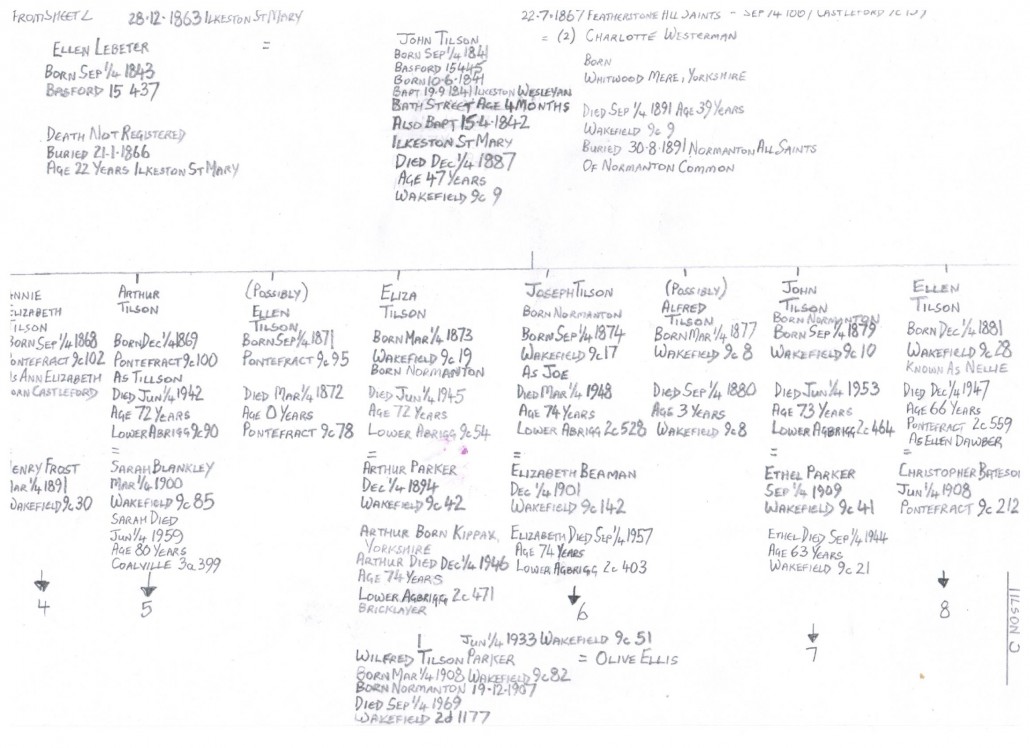 FROM SHEET 2
28-12-1863 ILKESTON ST MARY
22-7-1867 FEATHERSTONE ALL SAINTS - SEP 1/4 CASTLEFORD
ELLEN LEBETER
BORN SEP 1/4 1843
BASFORD 15 437
DEATH NOT REGISTERED
BURIED 21-1-1866
AGE 22 YEARS ILKESTON ST MARY
=
JOHN TILSON
BORN SEP 1/4 1841
BASFORD 15 445
BORN 10-6-1841
BAPT 19-9-1841 ILKESTON WESLEYAN
BATH STREET AGE 4 MONTHS
ALSO BAPT 15-4-1842
ILKESTON ST MARY
DIED DEC 1/4 1887
AGE 47 YEARS
WAKEFIELD 9c 9
= (2) CHARLOTTE WESTERMAN
BORN
WHITWOOD MERE, YORKSHIRE
DIED SEP 1/4 1891 AGE 39 YEARS
WAKEFIELD 9c 9
BURIED 30-8-1891 NORMANTON ALL SAINTS
OF NORMANTON COMMON
NNIE
LIZABETH
TILSON
BORN SEP 1/4 1868
PONTEFRACT 9c 102
AS ANN ELIZABETH
CASTLEFORD
=
HENRY FROST
MAR 1/4 1891
WAKEFIELD 9c 30
4
ARTHUR
TILSON
BORN DEC 1/4 1869
PONTEFRACT 9c 100
AS TILLSON
DIED JUN 1/4 1942
AGE 72 YEARS
LOWER ABRIGG 9c 90
=
SARAH BLANKLEY
MAR 1/4 1900
WAKEFIELD 9c 85
SARAH DIED
JUN 1/4 1959
AGE 80 YEARS
COALVILLE 3a 399
5
(POSSIBLY)
ELLEN
TILSON
BORN SEP 1/4 1871
PONTEFRACT 9c 95
DIED MAR 1/4 1872
AGE 0 YEARS
PONTEFRACT 9c 78
ELIZA
TILSON
BORN MAR 1/4 1873
WAKEFIELD 9c 19
BORN NORMANTON
DIED JUN 1/4 1945
AGE 72 YEARS
LOWER ABRIGG 9c 54
=
ARTHUR PARKER
DEC 1/4 1894
WAKEFIELD 9c 42
ARTHUR BORN KIPPAX,
YORKSHIRE
ARTHUR DIED DEC 1/4 1946
AGE 74 YEARS
LOWER AGBRIGG 2c 471
BRICKLAYER
JUN 1/4 1933 WAKEFIELD 9c 51
WILFRED TILSON PARKER = OLIVE ELLIS
BORN MAR 1/4 1908 WAKEFIELD 9c 82
BORN NORMANTON 19-12-1907
DIED SEP 1/4 1969
WAKEFIELD 2d 1177
JOSEPH TILSON
BORN NORMANTON
BORN SEP 1/4 1874
WAKEFIELD 9c 17
AS JOE
DIED MAR 1/4 1948
AGE 74 YEARS
LOWER ABRIGG 2c 528
=
ELIZABETH BEAMAN
DEC 1/4 1901
WAKEFIELD 9c 142
ELIZABETH DIED SEP 1/4 1957
AGE 74 YEARS
LOWER AGBRIGG 2c 403
6
(POSSIBLY)
ALFRED
TILSON
BORN MAR 1/4 1877
WAKEFIELD 9c 8
DIED SEP 1/4 1880
AGE 3 YEARS
WAKEFIELD 9c 8
JOHN
TILSON
BORN NORMANTON
BORN SEP 1/4 1879
WAKEFIELD 9c 10
DIED JUN 1/4 1953
AGE 73 YEARS
LOWER AGBRIGG 2c 464
=
ETHEL PARKER
SEP 1/4 1909
WAKEFIELD 9c 41
ETHEL DIED SEP 1/4 1944
AGE 63 YEARS
WAKEFIELD 9c 21
7
ELLEN
TILSON
BORN DEC 1/4 1881
WAKEFIELD 9c 28
KNOWN AS NELLIE
DIED DEC 1/4 1947
AGE 66 YEARS
PONTEFRACT 2c 559
AS ELLEN DAWBER
=
CHRISTOPHER BATESON
JUN 1/4 1908
PONTEFRACT 9c 212
8
TILSON C